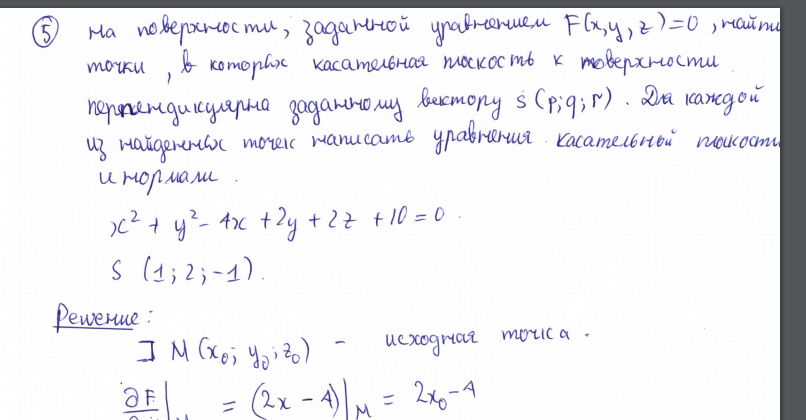 ⑤ на поверхности, заданной уравнением F(x,y,z)=0, найти
точки, в которых касательная плоскость к поверхности
перпендикулярна заданному вектору s (p;q;r). Для каждой
из найденных точек написать уравнения касательный плоскости
и нормали.
x² + y² - 4x + 2y + 2z + 10 = 0.
S (1; 2; -1).
Решение:
∃ M (x₀; y₀; z₀) - исходная точка.
∂F | = (2x - 4)|M = 2x₀ - 4